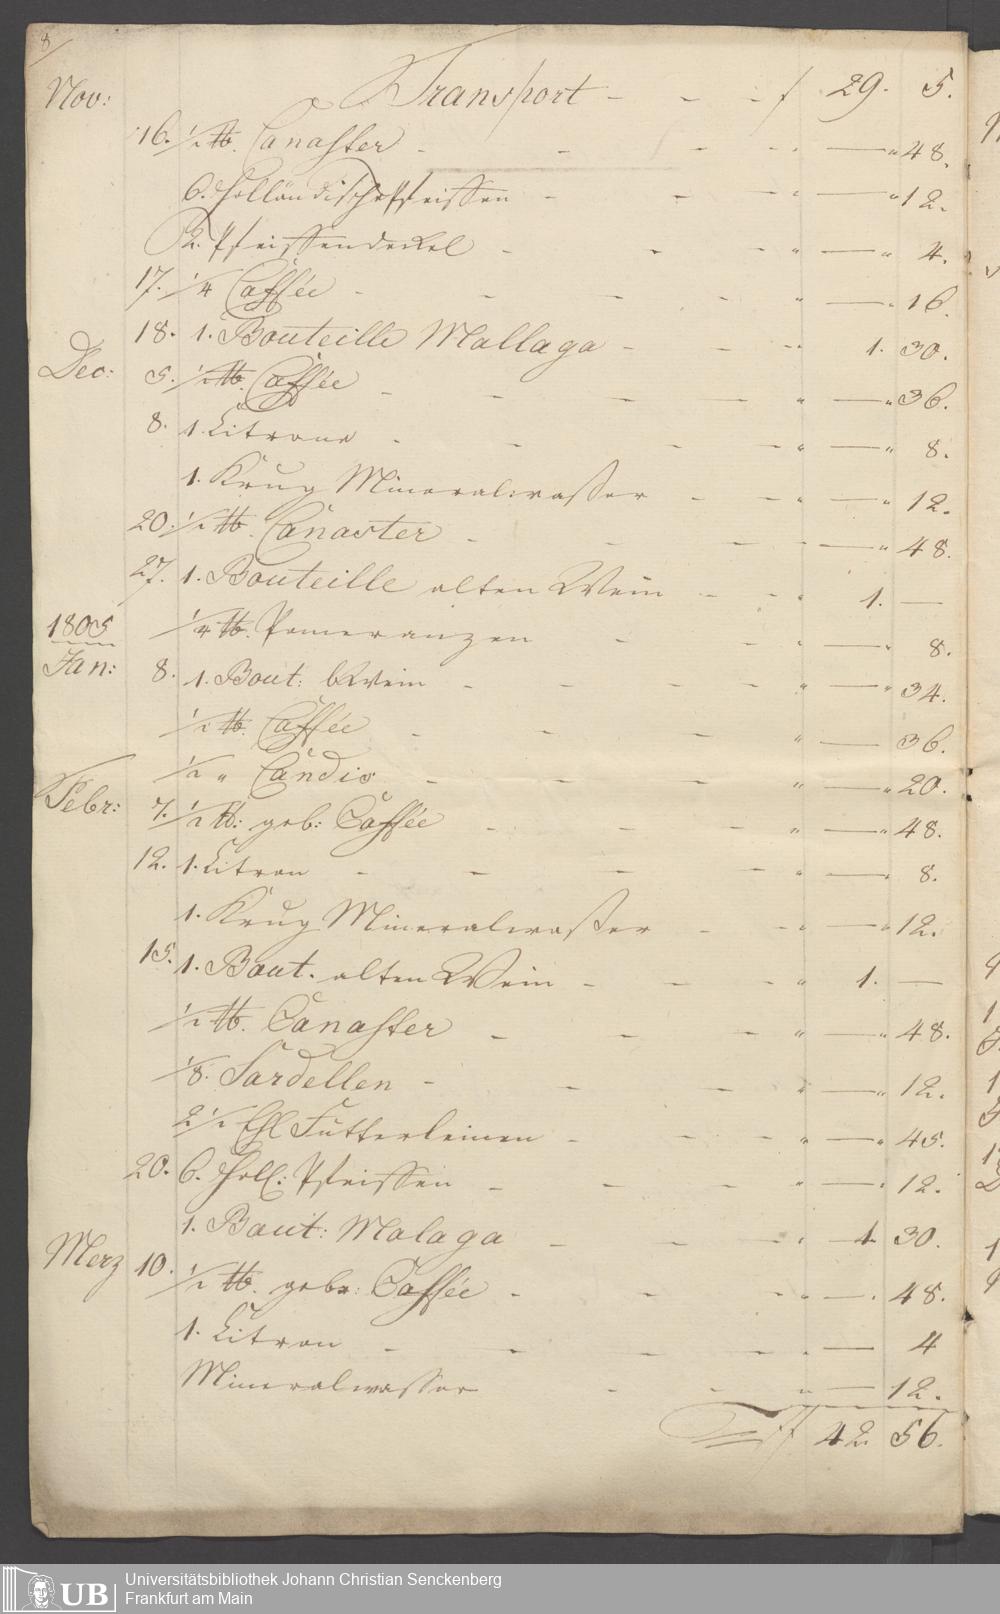 8
Nov: Transport - - - f 29. 5.
16. 1/2 ℔. Canaster - - - " — " 48.
6. Holländische Pfeiffen - - - " — " 12.
2. Pfeiffendeckel - - - " — " 4.
17. 1/4 Caffée - - - " — " 16.
18. 1. Bouteille Mallaga - - - " 1. 30.
Dec: 5. 1/2 ℔. Caffée - - - " — " 36.
8. 1. Citrone - - - " — " 8.
1. Krug Mineralwasser - - " — " 12.
20. 1/2 ℔. Canaster - - - — " 48.
27. 1. Bouteille alten Wein - - " 1. —
1805 1/4 ℔. Pomeranzen - - " — " 8.
Jan: 8. 1. Bout: Wein - - - " — " 34.
1/2 ℔. Caffée - - - " — 36.
1/2 " Candis - - - " — " 20.
Febr: 7. 1/2 ℔: geb: Caffée - - - " — " 48.
12. 1. Citron - - - - " — " 8.
1. Krug Mineralwaßer - - " — " 12.
15. 1. Bout. alten Wein - - - " 1. —
1/2 ℔. Canaster - - - " — " 48.
1/8. Sardellen - - - " — " 12.
2 1/2 Ehl Futterleinen - - - " — " 45.
20. 6. Holl: Pfeiffen - - - " — " 12.
1. Bout: Malaga - - - " 1. 30.
Merz 10. 1/2 ℔. gebr: Caffée - - - " — " 48.
1. Citron - - - - " — 4
Mineralwasser - - " — 12.
f 42 56.
Universitätsbibliothek Johann Christian Senckenberg
Frankfurt am Main
UB